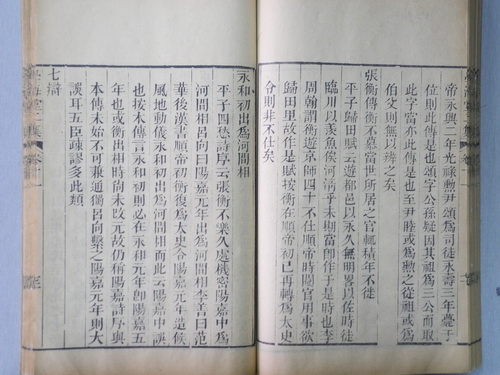 帝永興二年光祿勲尹頌爲司徒永壽三年薨于
位則此傳是也頌字公孫疑因其祖爲三公而取
此字當亦傳是也至尹睦或爲勲之從祖或爲
伯父則無以辨之矣
張衡傳衡不慕當世所居之官輒積年不徙
平子歸田賦云遊都邑以永久無明畧以佐時徒
臨川以羡魚俟河清乎未期當卽作于是時也李
周翰謂衡遊京師四十不仕順帝時閹官用事欲
歸田里故作是賦按衡在順帝初已再轉爲太史
令則非不仕矣
永和初出爲河閒相
平子四愁詩序云張衡不樂久處機密陽嘉中爲
河閒相呂向曰陽嘉元年出爲河閒相李善曰范
華後漢書順帝初衡復爲太史令陽嘉元年造候
風地動儀永和初出爲河閒相而此云陽嘉中誤
也按本傳言永和初則必在永和元年卽陽嘉五
年也或衡出相時尚未改元故仍稱陽嘉詩序與
本傳未始不可兼通獨呂向繫之陽嘉元年則大
誤耳五臣疎謬多此類
七辯